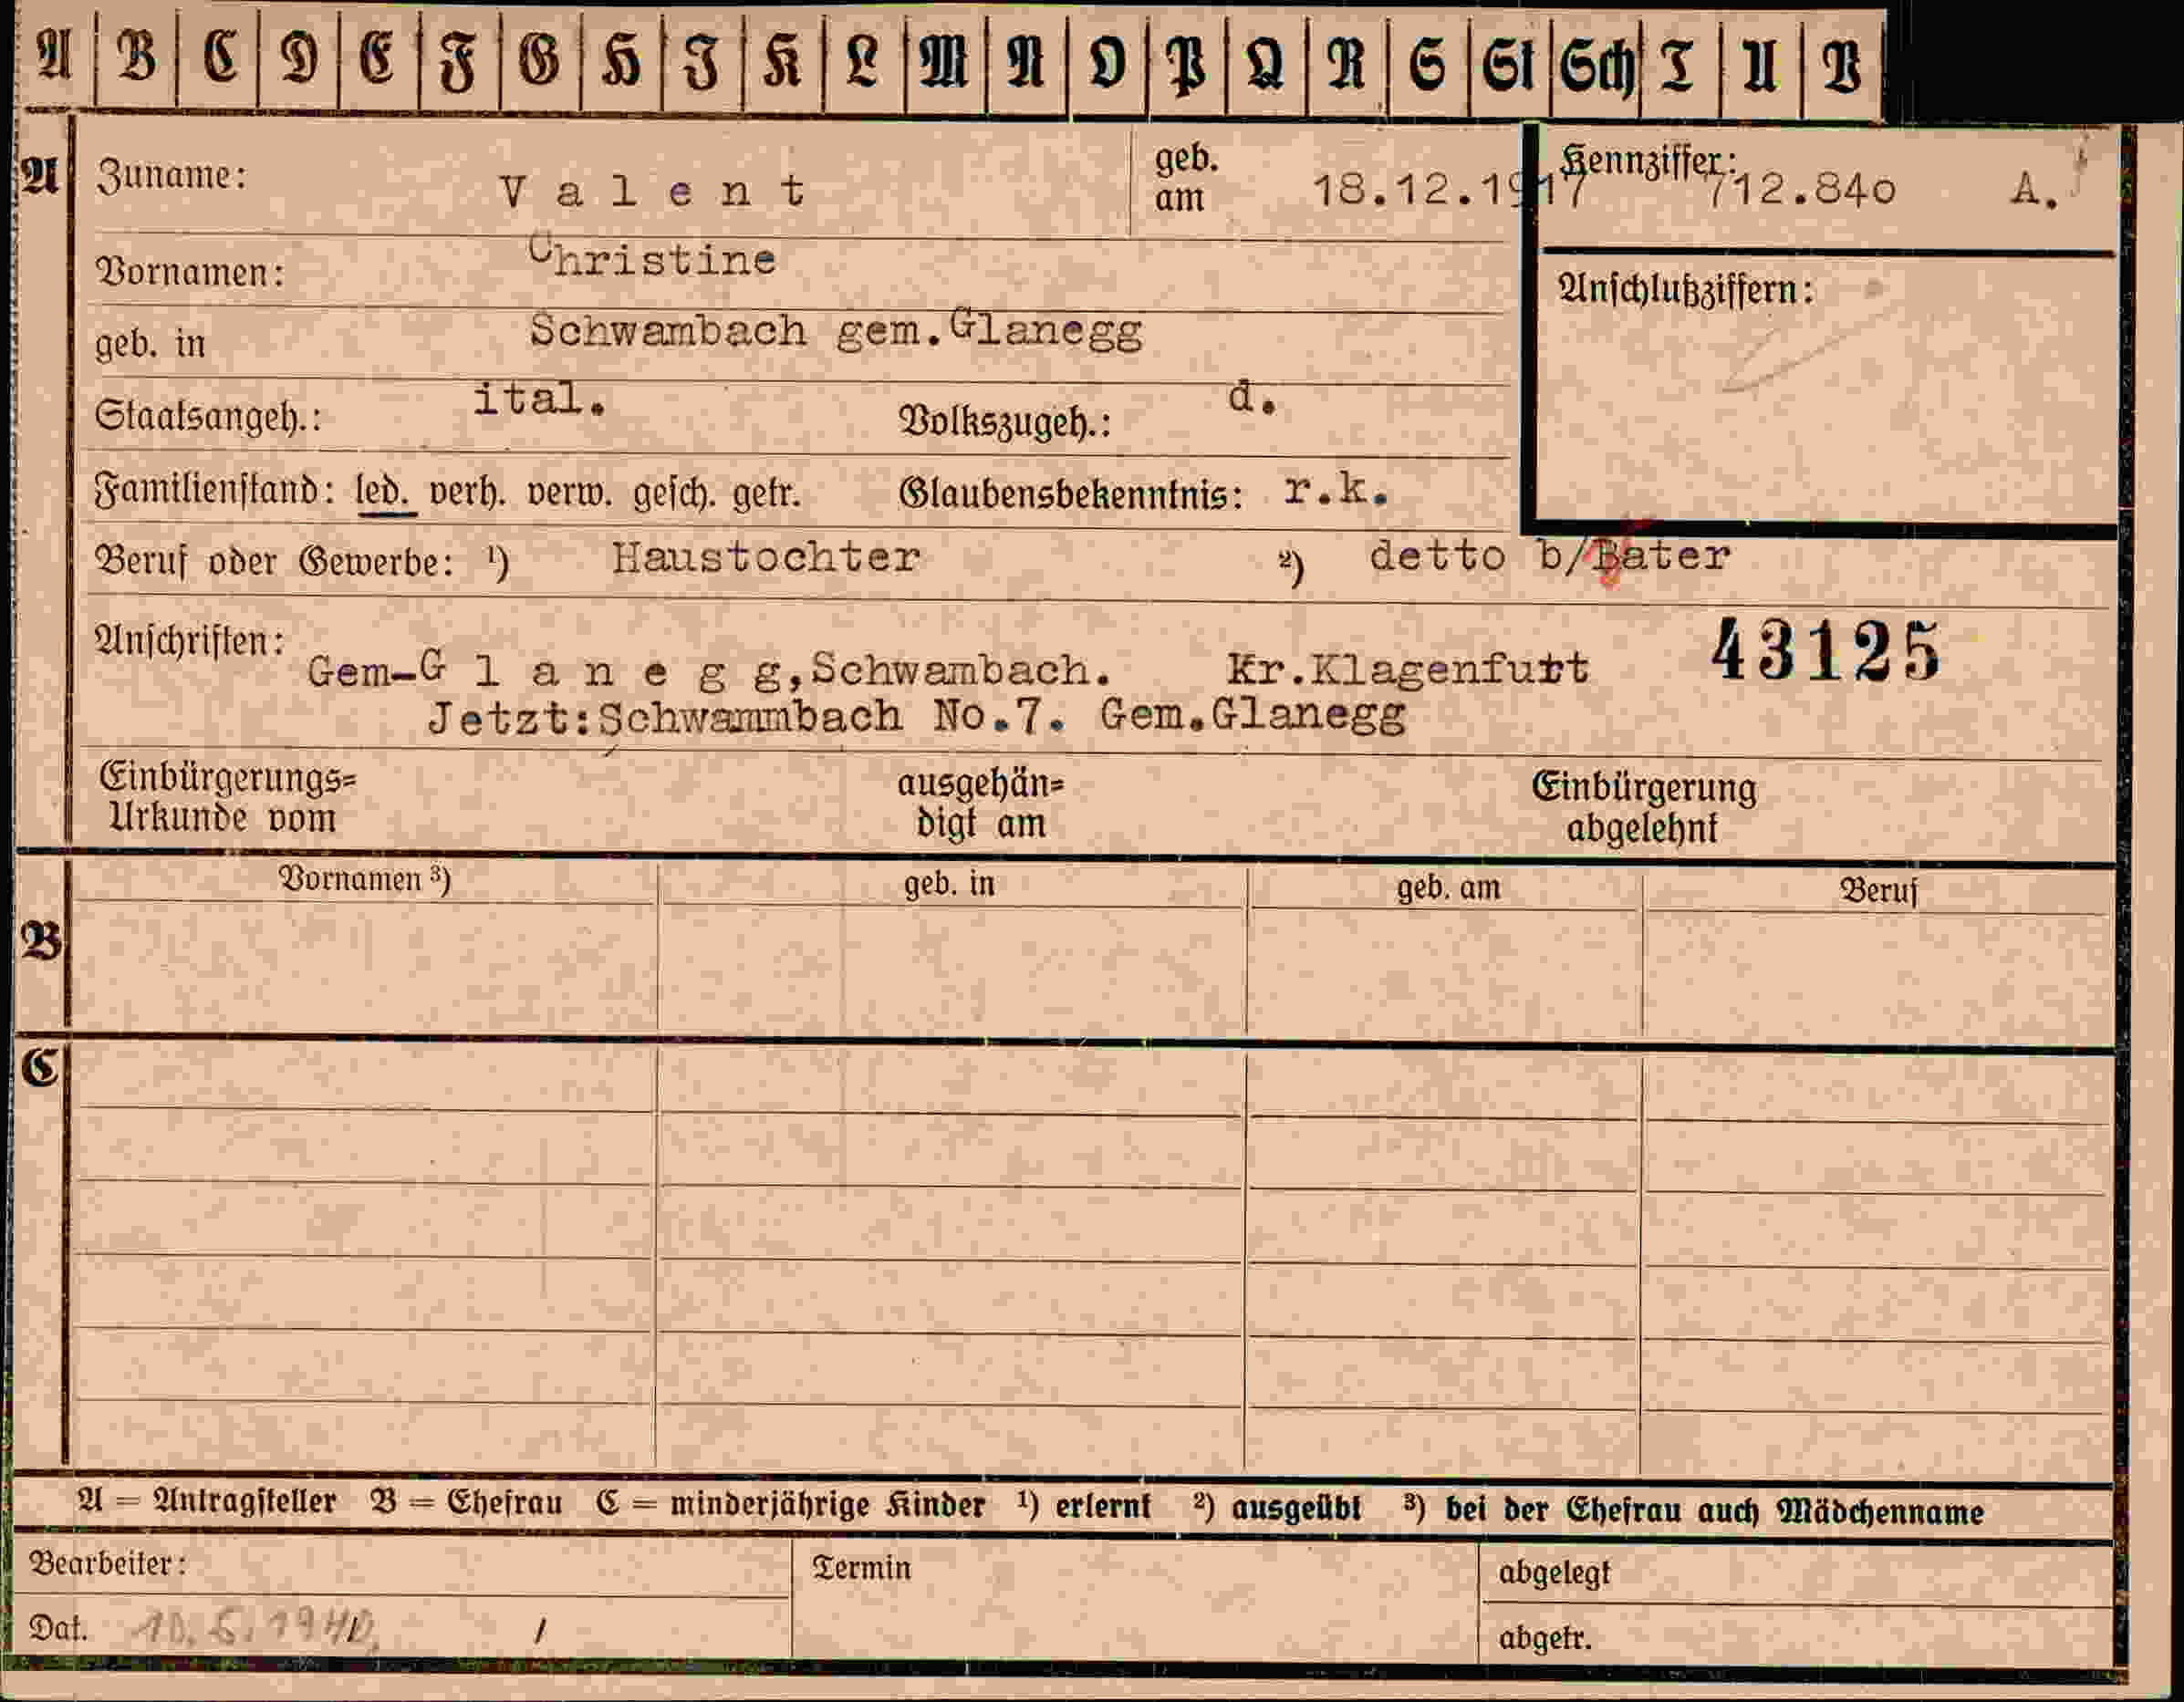 A B C D E F G H I K L M N O P Q R S St Sch T U V
A Zuname: Valent geb. am 18.12.1917 Kennziffer: 712.840 A.
Vornamen: Christine
Anschlußziffern:
geb. in Schwambach gem.Glanegg
Staatsangeh.: ital. Volkszugeh.: d.
Familienstand: led. verh. verw. gesch. getr. Glaubensbekenntnis: r.k.
Beruf oder Gewerbe: ¹) Haustochter ²) detto b/Vater
Anschriften: 43125
Gem-Glanegg,Schwambach. Kr.Klagenfurt
Jetzt:Schwammbach No.7. Gem.Glanegg
Einbürgerungs= ausgehän= Einbürgerung
Urkunde vom digt am abgelehnt
Vornamen ³) geb. in geb. am Beruf
B
C
A = Antragsteller B = Ehefrau C = minderjährige Kinder ¹) erlernt ²) ausgeübt ³) bei der Ehefrau auch Mädchenname
Bearbeiter: Termin abgelegt
Dat. 10.5.1940. / abgetr.